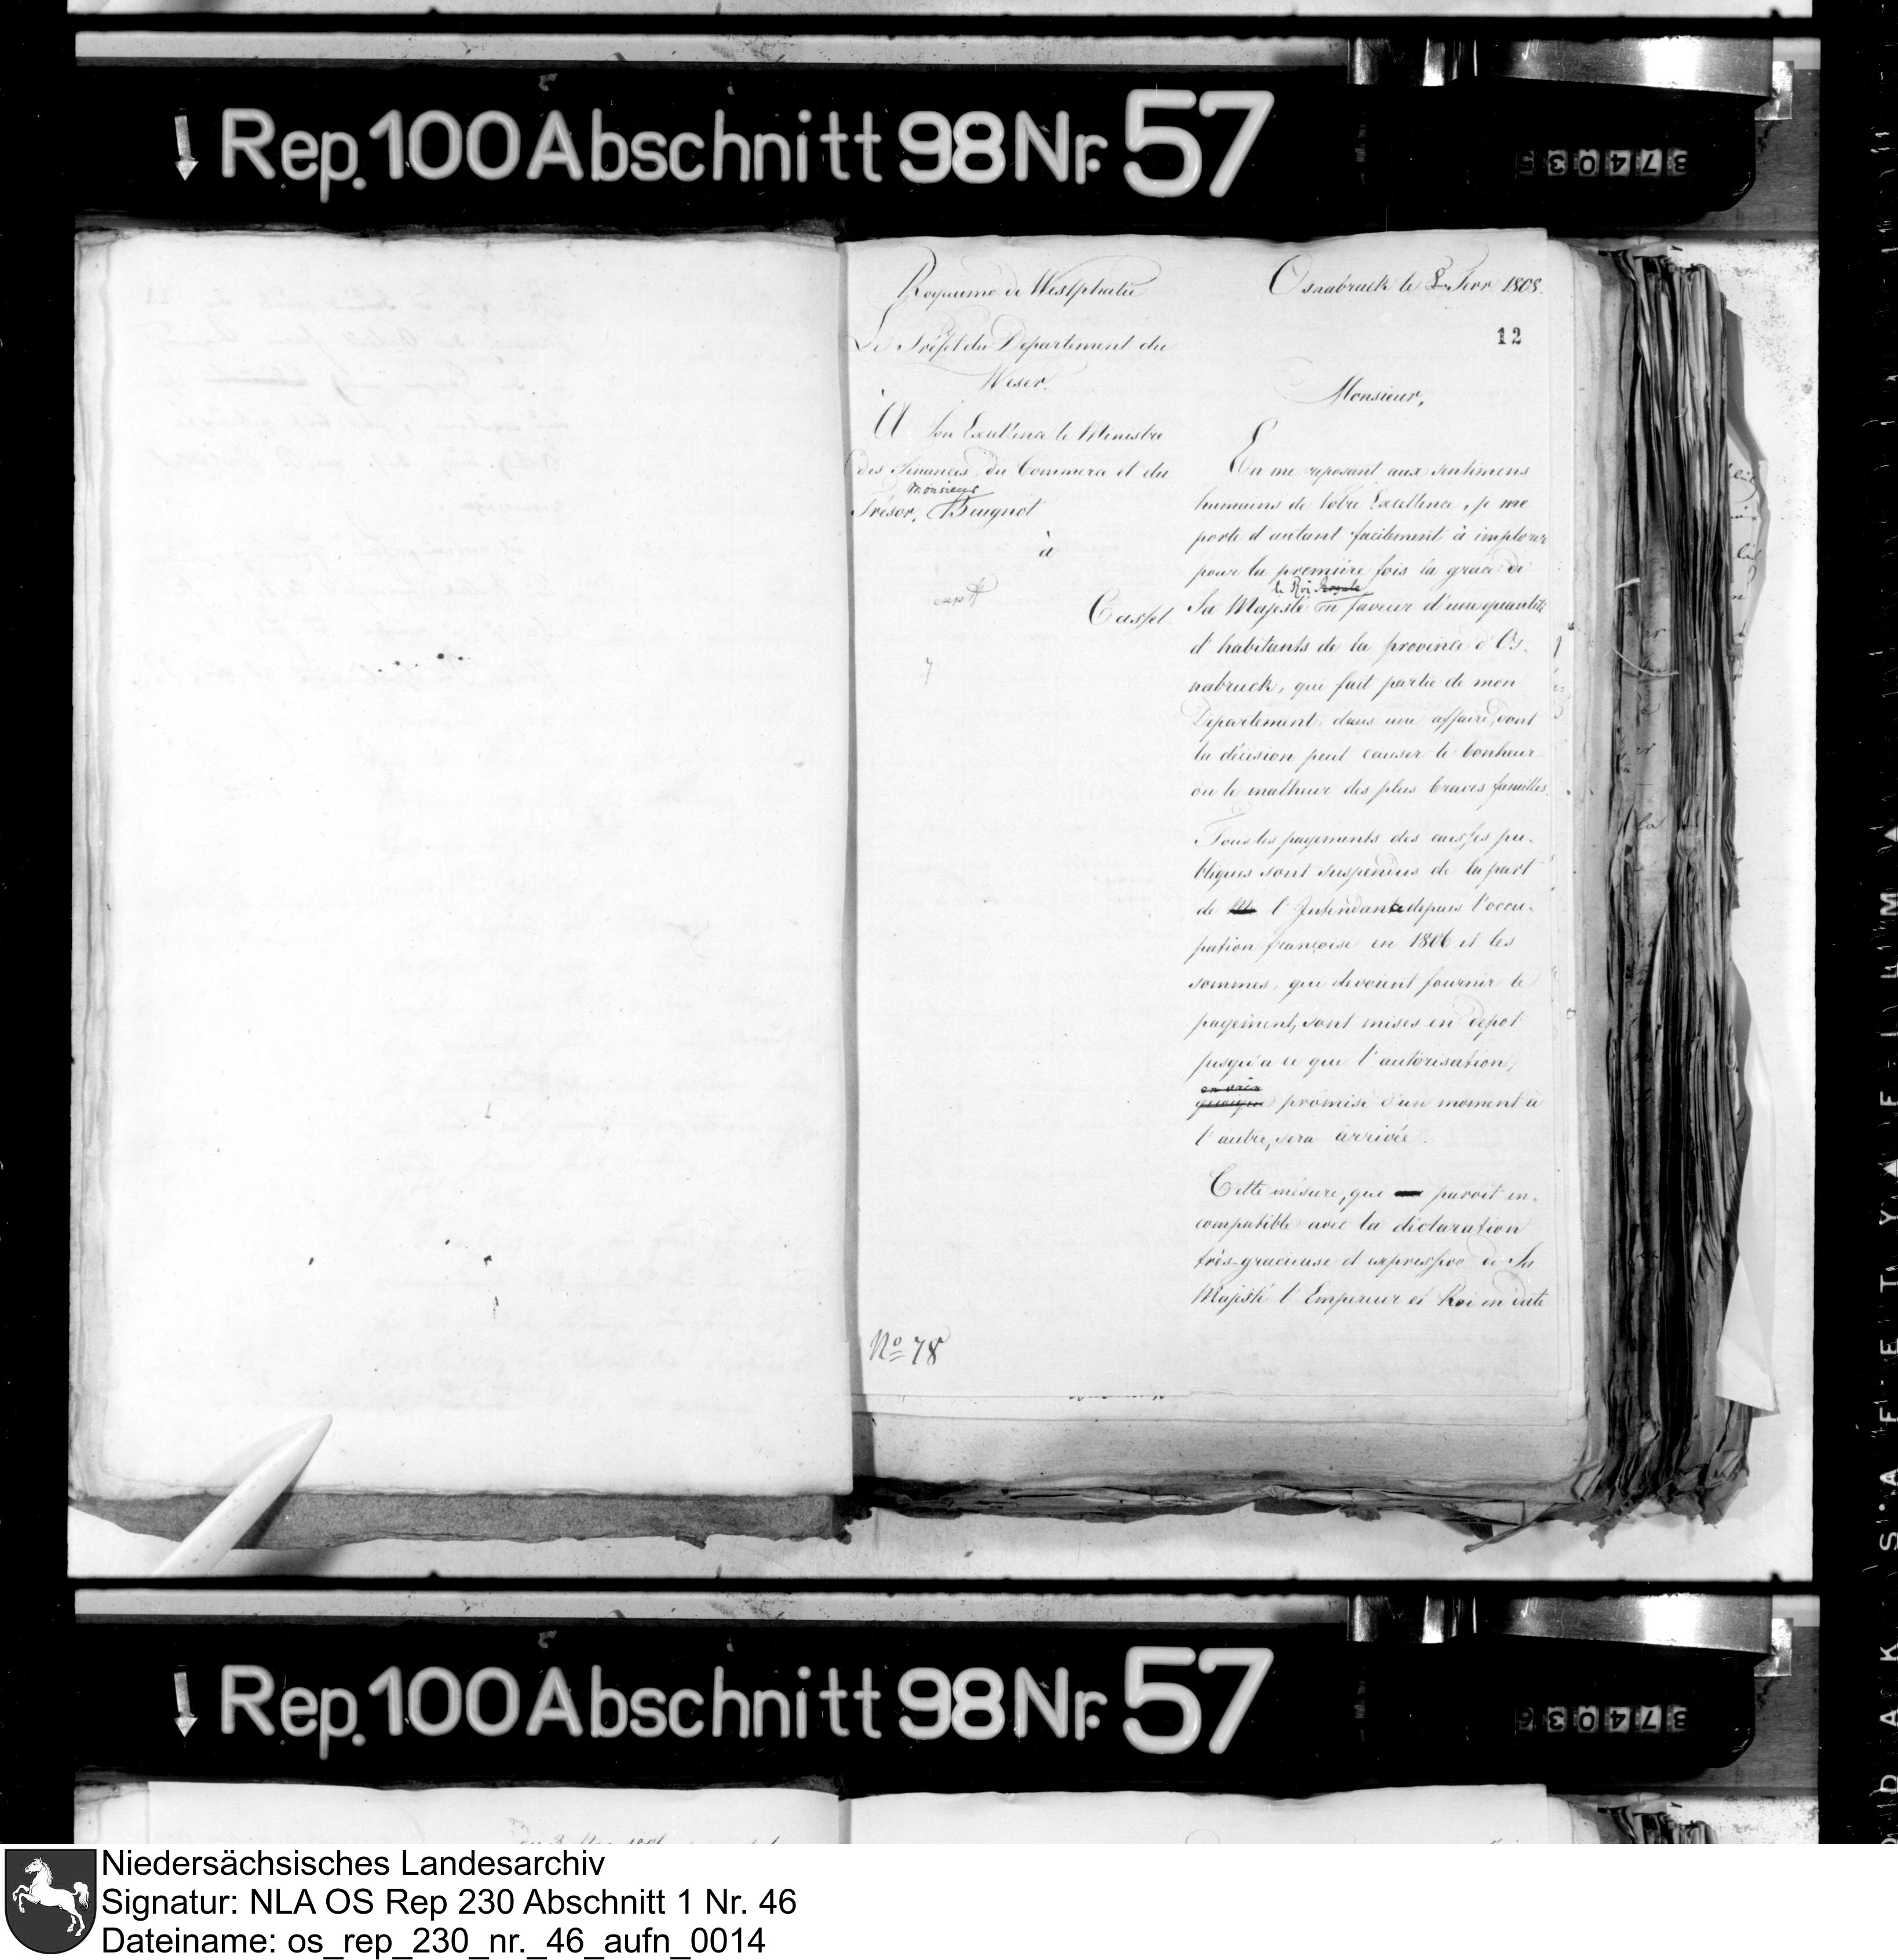 Rep. 100 Abschnitt 98 Nr. 57
Royaume de Westphalie
Le Préfet du Departement du
Weser.
A Son Excellence le Ministre
des Finances, du Commerce et du
Monsieur
Trésor, Beugnot
à
Cassel.
No 78
Osnabruck le 8 Fevr. 1808.
12
Monsieur,
En me reposant aux sentimens
humains de Votre Excellence, je me
porte d'autant facilement à implorer
pour la première fois la grace de
le Roi
Sa Majesté en faveur d'une quantité
d'habitants de la province d'Os-
nabruck, qui fait partie de mon
Departement, dans une affaire, dont
la décision peut causer le bonheur
ou le malheur des plus braves familles.
Tous les payements des caisses pu-
bliques sont suspendus de la part
de l'Intendance depuis l'occu-
pation françoise en 1806 et les
sommes, que devoient fournir le
payement, sont mises en depot
jusqu'a ce que l'autorisation,
en vain
quoique promise d'un moment à
l'autre, sera arrivée.
Cette mésure, que paroit in-
compatible avec la déclaration
très-gracieuse et expressive de Sa
Majesté l'Empereur et Roi en date
Rep. 100 Abschnitt 98 Nr. 57
Niedersächsisches Landesarchiv
Signatur: NLA OS Rep 230 Abschnitt 1 Nr. 46
Dateiname: os_rep_230_nr._46_aufn_0014